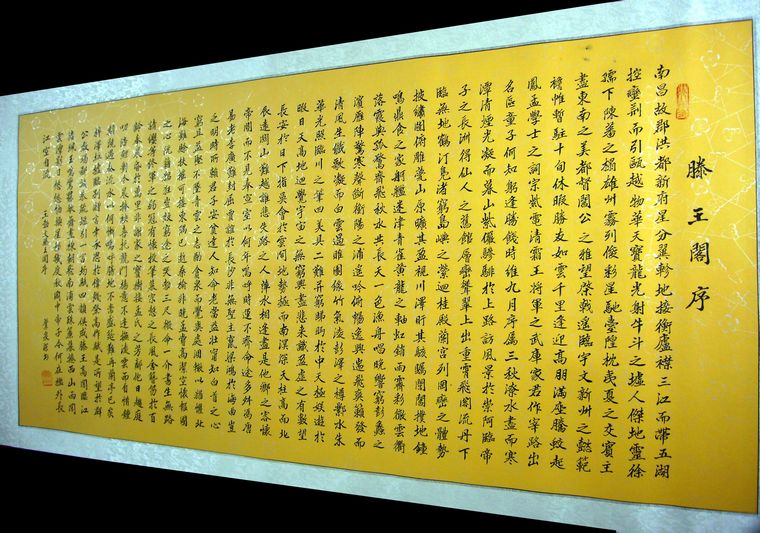 滕王閣序
南昌故郡洪都新府星分翼軫地接衡廬襟三江而帶五湖
控蠻荊而引甌越物華天寶龍光射牛斗之墟人傑地靈徐
孺下陳蕃之榻雄州霧列俊彩星馳臺隍枕夷夏之交賓主
盡東南之美都督閻公之雅望棨戟遙臨宇文新州之懿範
襜帷暫駐十旬休暇勝友如雲千里逢迎高朋滿座騰蛟起
鳳孟學士之詞宗紫電清霜王將軍之武庫家君作宰路出
名區童子何知躬逢勝餞時維九月序屬三秋潦水盡而寒
潭清煙光凝而暮山紫儼驂騑於上路訪風景於崇阿臨帝
子之長洲得仙人之舊館層巒聳翠上出重霄飛閣流丹下
臨無地鶴汀鳧渚窮島嶼之縈迴桂殿蘭宮列岡巒之體勢
披繡闥俯雕甍山原曠其盈視川澤盱其駭矚閭閻撲地鐘
鳴鼎食之家舸艦迷津青雀黃龍之軸虹銷雨霽彩徹雲衢
落霞與孤鶩齊飛秋水共長天一色漁舟唱晚響窮彭蠡之
濱雁陣驚寒聲斷衡陽之浦遙吟俯暢逸興遄飛爽籟發而
清風生纖歌凝而白雲遏睢園綠竹氣凌彭澤之樽鄴水朱
華光照臨川之筆四美具二難并窮睇眄於中天極娛遊於
暇日天高地迥覺宇宙之無窮興盡悲來識盈虛之有數望
長安於日下指吳會於雲間地勢極而南溟深天柱高而北
辰遠關山難越誰悲失路之人萍水相逢盡是他鄉之客懷
帝閽而不見奉宣室以何年嗚呼時運不齊命途多舛馮唐
易老李廣難封屈賈誼於長沙非無聖主竄梁鴻於海曲豈
乏明時所賴君子安貧達人知命老當益壯寧知白首之心
窮且益堅不墜青雲之志酌貪泉而覺爽處涸轍以猶懽北
海雖賒扶搖可接東隅已逝桑榆非晚孟嘗高潔空懷報國
之心阮籍猖狂豈效窮途之哭勃三尺微命一介書生無路
請纓等終軍之弱冠有懷投筆慕宗愨之長風舍簪笏於百
齡奉晨昏於萬里非謝家之寶樹接孟氏之芳鄰他日趨庭
叨陪鯉對今晨捧袂喜托龍門楊意不逢撫凌雲而自惜鍾
期既遇奏流水以何慚嗚呼勝地不常盛筵難再蘭亭已矣
梓澤丘墟臨別贈言幸承恩於偉餞登高作賦是所望於群
公敢竭鄙誠恭疏短引一言均賦四韻俱成滕王高閣臨江
渚佩玉鳴鸞罷歌舞畫棟朝飛南浦雲珠簾暮捲西山雨閒
雲潭影日悠悠物換星移幾度秋閣中帝子今何在檻外長
江空自流 王勃文滕王閣序